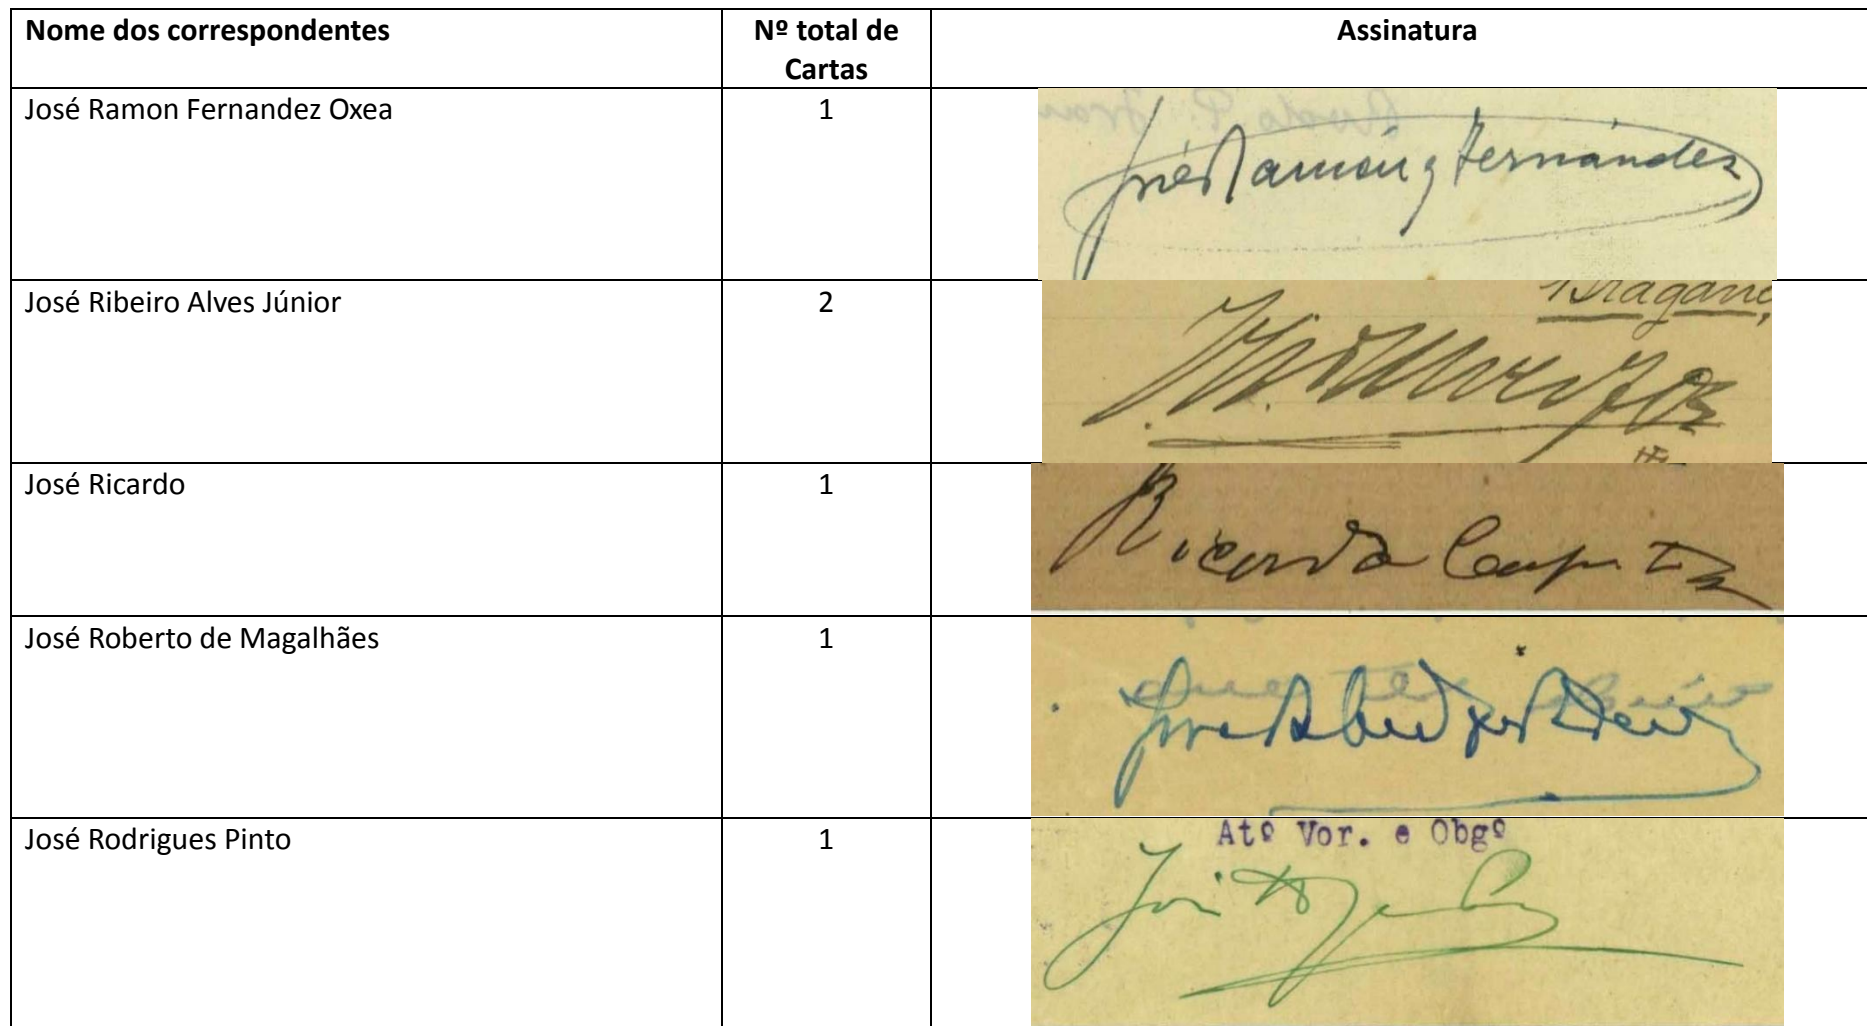 Nome dos correspondentes
Nº total de
Cartas
Assinatura
José Ramon Fernandez Oxea
1
José Ramón y Fernández
José Ribeiro Alves Júnior
2
José Ricardo
1
Ricardo
José Roberto de Magalhães
1
José
José Rodrigues Pinto
1
Atº Vor. e Obgº
José